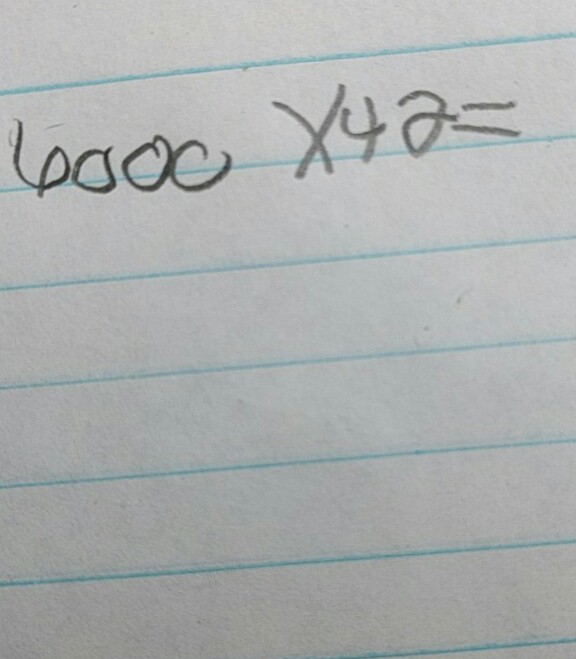 6000 X42=